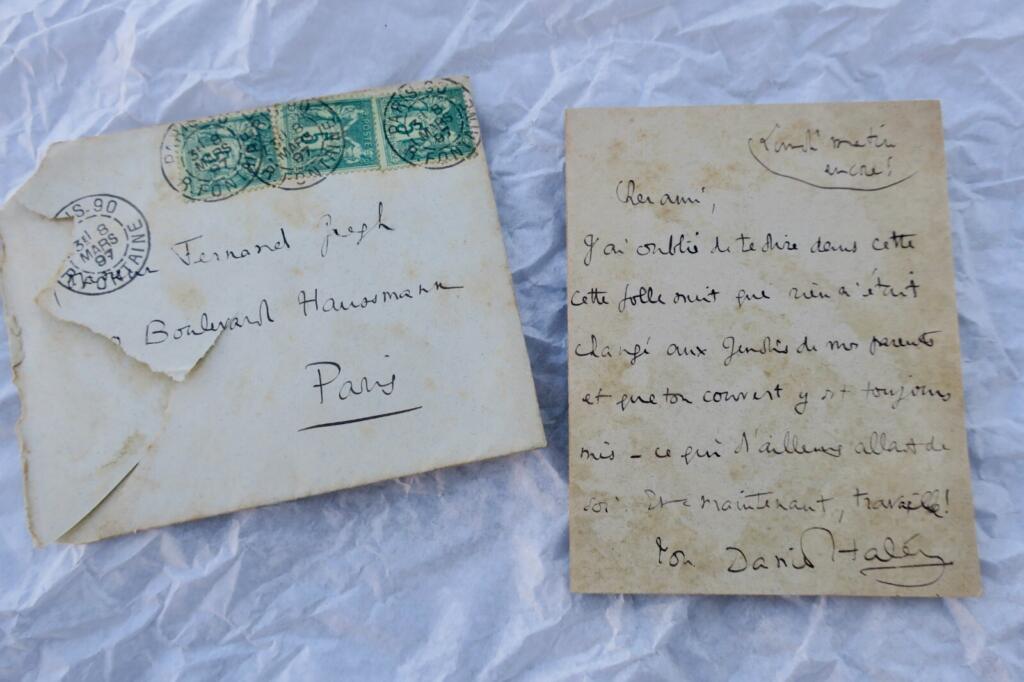 PARIS
R. FONTAINE
PARIS
R. FONTAINE
S. 90
3E/ 8
MARS
97
FONTAINE
Fernand Gregh
Boulevard Haussmann
Paris
Lundi matin
encre!
Cher ami,
J'ai oublié de te dire dans cette
cette folle nuit que rien n'était
changé aux jeudis de mes parents
et que ton couvert y est toujours
mis - ce qui d'ailleurs allait de
soi. Et maintenant, travaille!
Ton Daniel Halévy